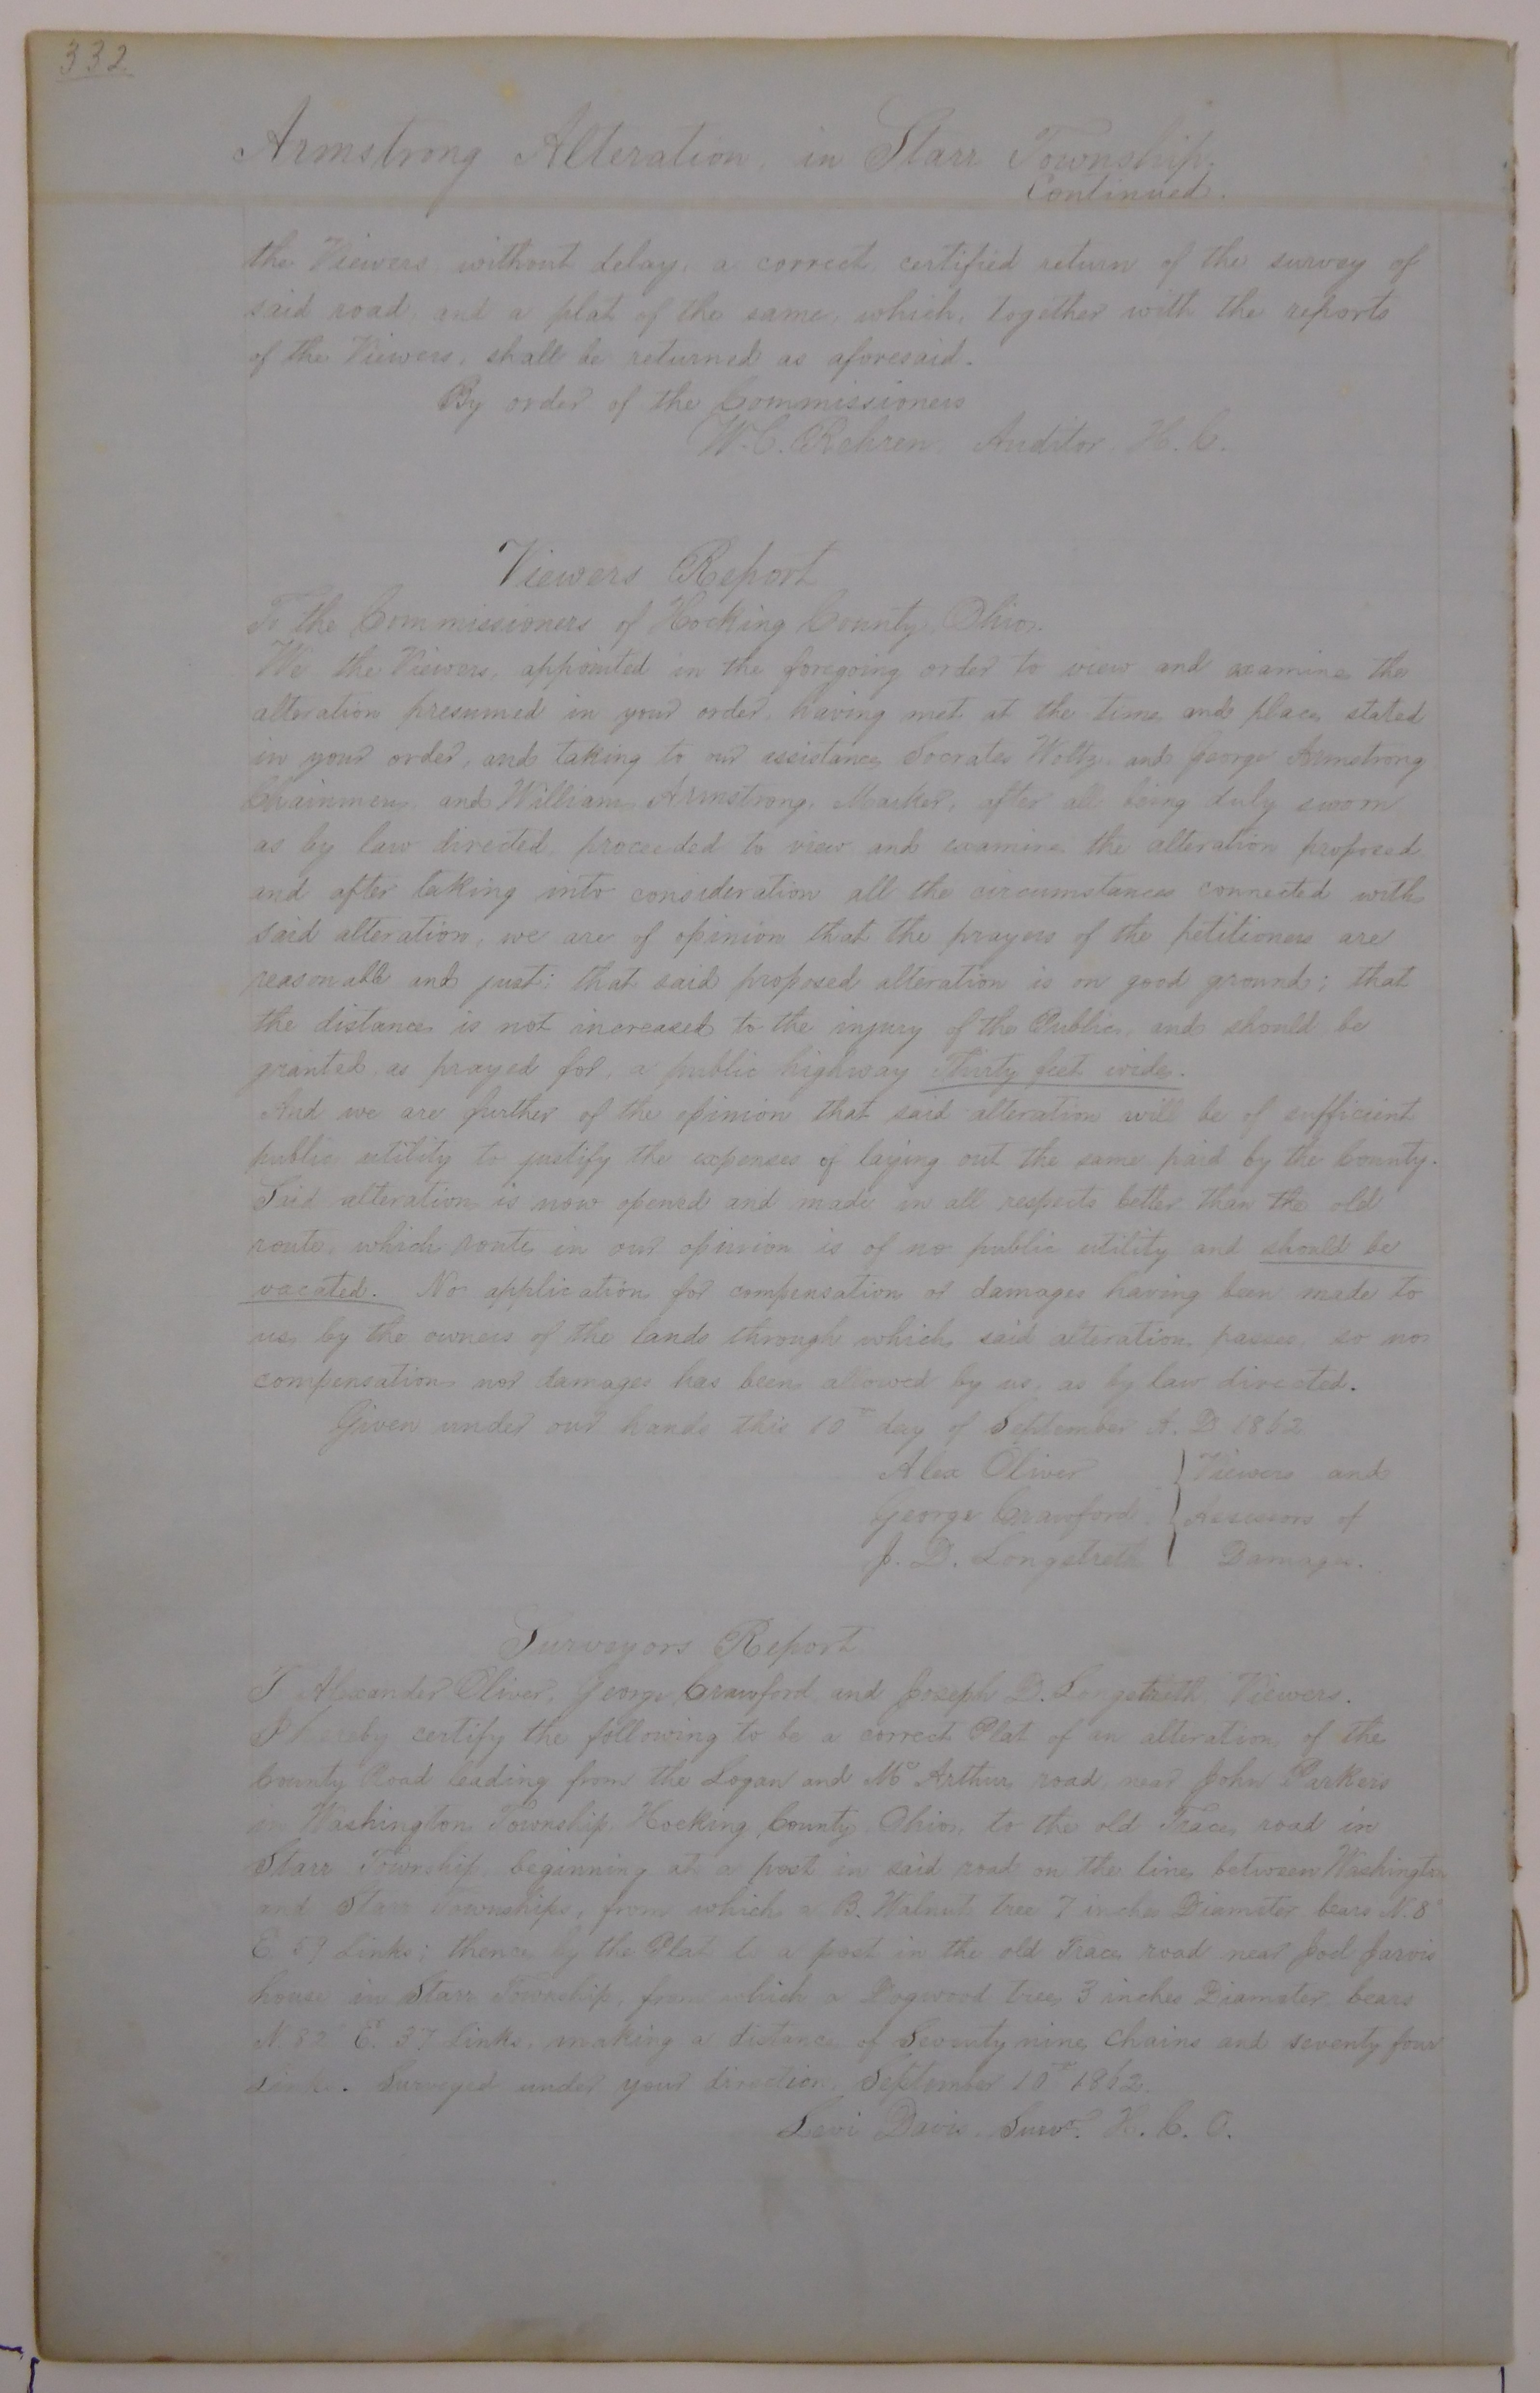 332
Armstrong Alteration, in Starr Township.
Continued.
the Viewers without delay, a correct certified return of the survey of
said road, and a plat of the same, which, together with the reports
of the Viewers, shall be returned as aforesaid.
By order of the Commissioners
W. C. Rehren, Auditor, H. C.
Viewers Report
To the Commissioners of Hocking County, Ohio.
We the Viewers, appointed in the foregoing order to view and examine the
alteration presumed in your order, having met at the time and place stated
in your order, and taking to our assistance Socrates Woltz, and George Armstrong
Chainmen, and William Armstrong, Marker, after all being duly sworn
as by law directed, proceeded to view and examine the alteration proposed
and after taking into consideration all the circumstances connected with
said alteration, we are of opinion that the prayers of the petitioners are
reasonable and just; that said proposed alteration is on good ground; that
the distance is not increased to the injury of the Public, and should be
granted, as prayed for, a public highway Thirty feet wide.
And we are further of the opinion that said alteration will be of sufficient
public utility to justify the expenses of laying out the same paid by the County.
Said alteration is now opened and made in all respects better than the old
route, which route in our opinion is of no public utility and should be
vacated. No application for compensation or damages having been made to
us by the owners of the lands through which said alteration passes, so no
compensation nor damages has been allowed by us, as by law directed.
Given under our hands this 10th day of September A. D. 1862
Alex Oliver } Viewers and
George Crawford } Assessors of
J. D. Longstreth } Damages.
Surveyors Report
T Alexander Oliver, George Crawford and Joseph D. Longstreth, Viewers.
I hereby certify the following to be a correct Plat of an alteration of the
County Road leading from the Logan and McArthur road, near John Parkers
in Washington Township Hocking County, Ohio, to the old Trace road in
Starr Township beginning at a post in said road on the line between Washington
and Starr Townships, from which a B. Walnut tree 7 inches Diameter bears N. 8°
E. 59 Links; thence by the Plat to a post in the old Trace road near Joel Jarvis
house in Starr Township, from which a Dogwood tree 3 inches Diameter bears
N. 82° E. 37 Links, making a distance of Seventy nine Chains and seventy four
Links. Surveyed under your direction, September 10th 1862.
Levi Davis, Survr. H. C. O.